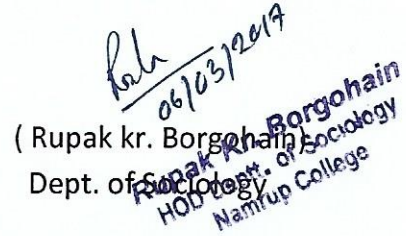 06/03/2017
( Rupak kr. Borgohain)
Dept. of Sociology
Rupak Kr. Borgohain
HOD Deptt. of Sociology
Namrup College